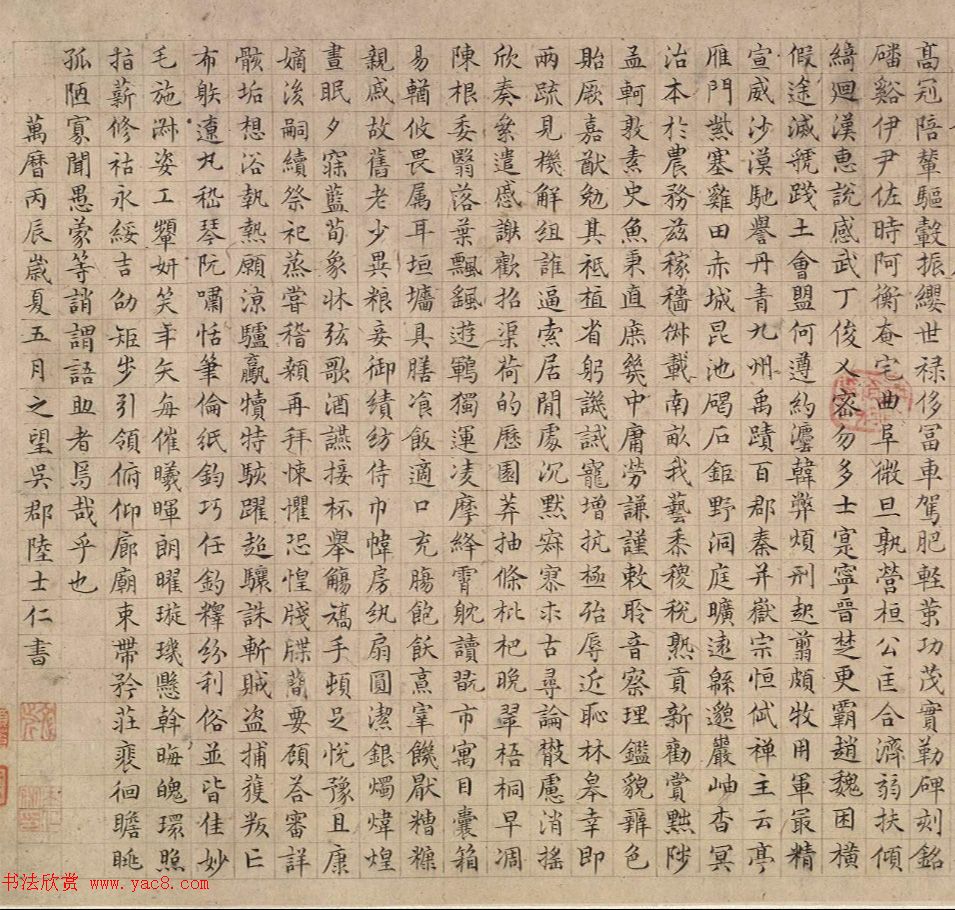 高冠陪輦驅轂振纓世祿侈冨車駕肥輕策功茂實勒碑刻銘
磻谿伊尹佐時阿衡奄宅曲阜微旦孰營桓公匡合濟弱扶傾
綺迴漢惠說感武丁俊乂密勿多士寔寧晉楚更霸趙魏困橫
假途滅虢踐土會盟何遵約灋韓弊煩刑起翦頗牧用軍最精
宣威沙漠馳譽丹青九州禹蹟百郡秦并嶽宗恒岱禅主云亭
雁門紫塞雞田赤城昆池碣石鉅野洞庭曠遠緜邈巖岫杳冥
治本於農務茲稼穡俶載南畝我藝黍稷稅熟貢新勸賞黜陟
孟軻敦素史魚秉直庶幾中庸勞謙謹敕聆音察理鑑貌辨色
貽厥嘉猷勉其祗植省躬譏誡寵增抗極殆辱近恥林皋幸即
兩疏見機解組誰逼索居閒處沉默寂寥求古尋論散慮消搖
欣奏累遣慼謝歡招渠荷的歷園莽抽條枇杷晚翠梧桐早凋
陳根委翳落葉飄颻遊鵾獨運凌摩絳霄耽讀翫市寓目囊箱
易輶攸畏属耳垣墻具膳飡飯適口充腸飽飫烹宰饑厭糟糠
親戚故舊老少異粮妾御績紡侍巾帷房紈扇圓潔銀燭煒煌
晝眠夕寐藍荀象牀弦歌酒讌接杯舉觴矯手頓足悅豫且康
嫡後嗣續祭祀蒸嘗稽顙再拜悚懼恐惶牋牒簡要顧答審詳
骸垢想浴執熱願涼驢騾犢特駭躍超驤誅斬賊盗捕獲叛亡
布射遼丸嵇琴阮嘯恬筆倫紙鈞巧任釣釋紛利俗並皆佳妙
毛施淑姿工顰妍笑年矢每催曦暉朗曜璇璣懸斡晦魄環照
指薪修祜永綏吉劭矩步引領俯仰廊廟束帶矜莊裴徊瞻眺
孤陋寡聞愚蒙等誚謂語助者焉哉乎也
萬曆丙辰歲夏五月之望吳郡陸士仁書
书法欣赏 www.yac8.com